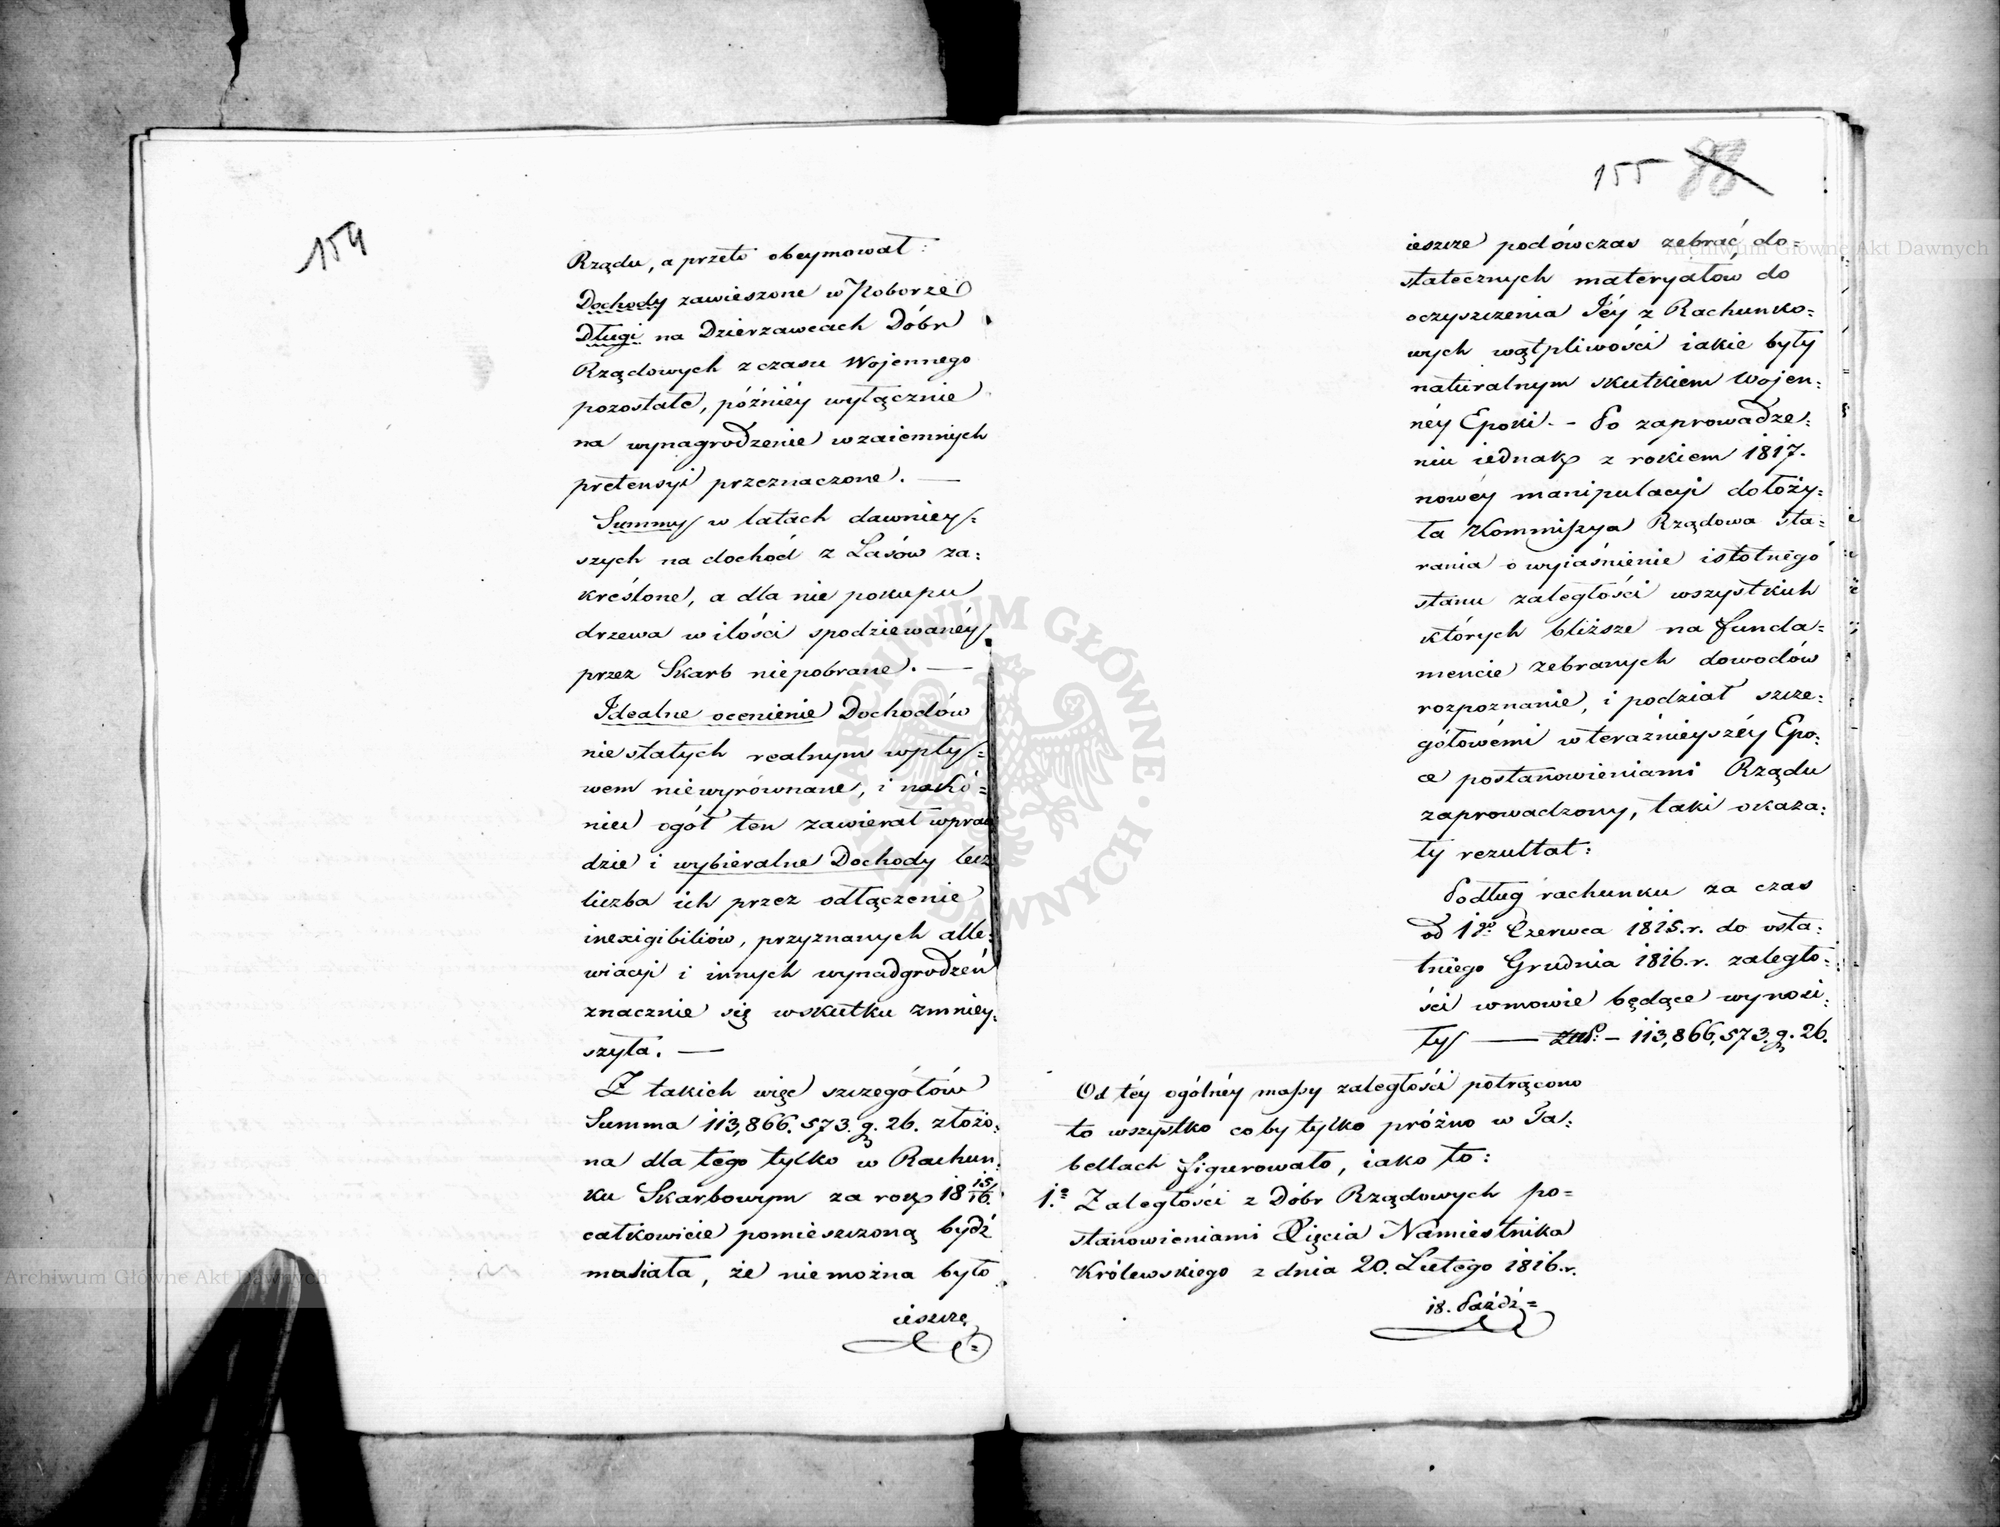 154
Rządu, a przeto obeymował:
Dochody zawieszone w Poborze
Długi na Dzierzawcach Dóbr
Rządowych z czasu Wojennego
pozostałe, późniéy wyłącznie
na wynagrodzenie wzaiemnych
pretensyi przeznaczone. —
Summy w latach dawniey=
szych na dochód z Lasów za=
kreślone, a dla nie pokupu
drzewa w ilości spodziewanéy
przez Skarb niepobrane. —
Idealne ocenienie Dochodów
niestałych realnym wpły=
wem niewyrównane, i nakó=
niec ogół ten zawierał wpraw
dzie i wybieralne Dochody lecz
liczba ich przez odłączenie
inexigibiliów, przyznanych alle=
wiacyi i innych wynadgrodzeń
znacznie się wskutku zmniey=
szyła. —
Z takich więc szczegółów
Summa 113,866,573. g. 26. złożo=
na dla tego tylko w Rachun=
ku Skarbowym za rok 1815/16.
całkowicie pomieszczoną bydź
musiała, że niemożna było
ieszcze
155 88
ieszcze podówczas zebrać do=
statecznych materyałów do
oczyszczenia Jéy z Rachunko=
wych wątpliwości iakie były
naturalnym skutkiem Wojen=
néy Epoki. – Po zaprowadze=
niu iednak z rokiem 1817.
nowéy manipulacyi dołoży=
ła Kommissya Rządowa sta=
rania o wyiaśnienie istotnégo
stanu zaległości wszystkich
których bliższe na funda=
mencie zebranych dowodów
rozpoznanie, i podział szcze=
gółowémi w teraźnieyszéy Epo=
ce postanowieniami Rządu
zaprowadzony, taki okaza=
ły rezultat:
Podług rachunku za czas
od 1go Czerwca 1815. r. do osta=
tniego Grudnia 1816. r. zaległo=
ści wmowie będące wynosi=
ły — Złp. – 113,866,573. g. 26.
Od téy ogólnéy massy zaległości potrącono
to wszystko coby tylko próżno w Ta=
bellach figurowało, iako to:
1.° Zaległości z Dóbr Rządowych po=
stanowieniami Xięcia Namiestnika
Królewskiego z dnia 20. Lutego 1816. r.
18. Paźdź=
Archiwum Główne Akt Dawnych
Archiwum Główne Akt Dawnych
ARCHIWUM GŁÓWNE · AKT DAWNYCH ·